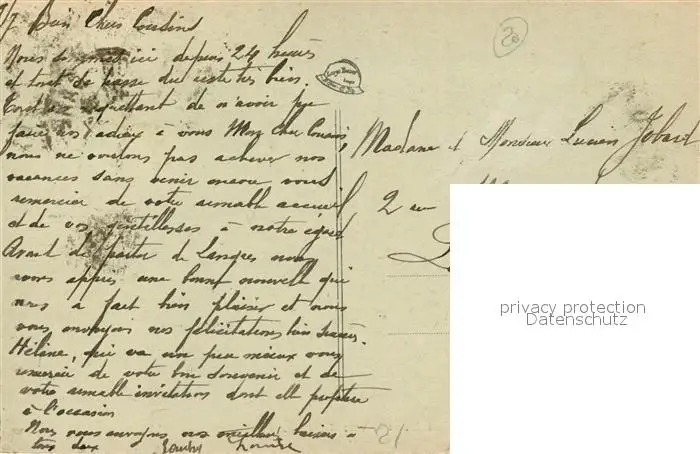 Bien Chers Cousins
Nous sommes ici depuis 24 heures
et tout se passe du reste très bien.
Tout en regrettant de n'avoir pu
faire nos adieux à vous Mon Cher Cousin,
nous ne voulons pas achever nos
vacances sans venir encore vous
remercier de votre aimable accueil
et de vos gentillesses à notre égard
Avant de partir de Langres nous
avons appris une bonne nouvelle qui
nous a fait bien plaisir et nous
vous envoyons nos félicitations bien sincères.
Hélène, qui va un peu mieux vous
remercie de votre bon souvenir et de
votre aimable invitation dont elle profitera
à l'occasion
Nous vous envoyons nos meilleurs baisers à
tous deux Louise
20
Madame et Monsieur Lucien Jobard
2 rue
privacy protection
Datenschutz